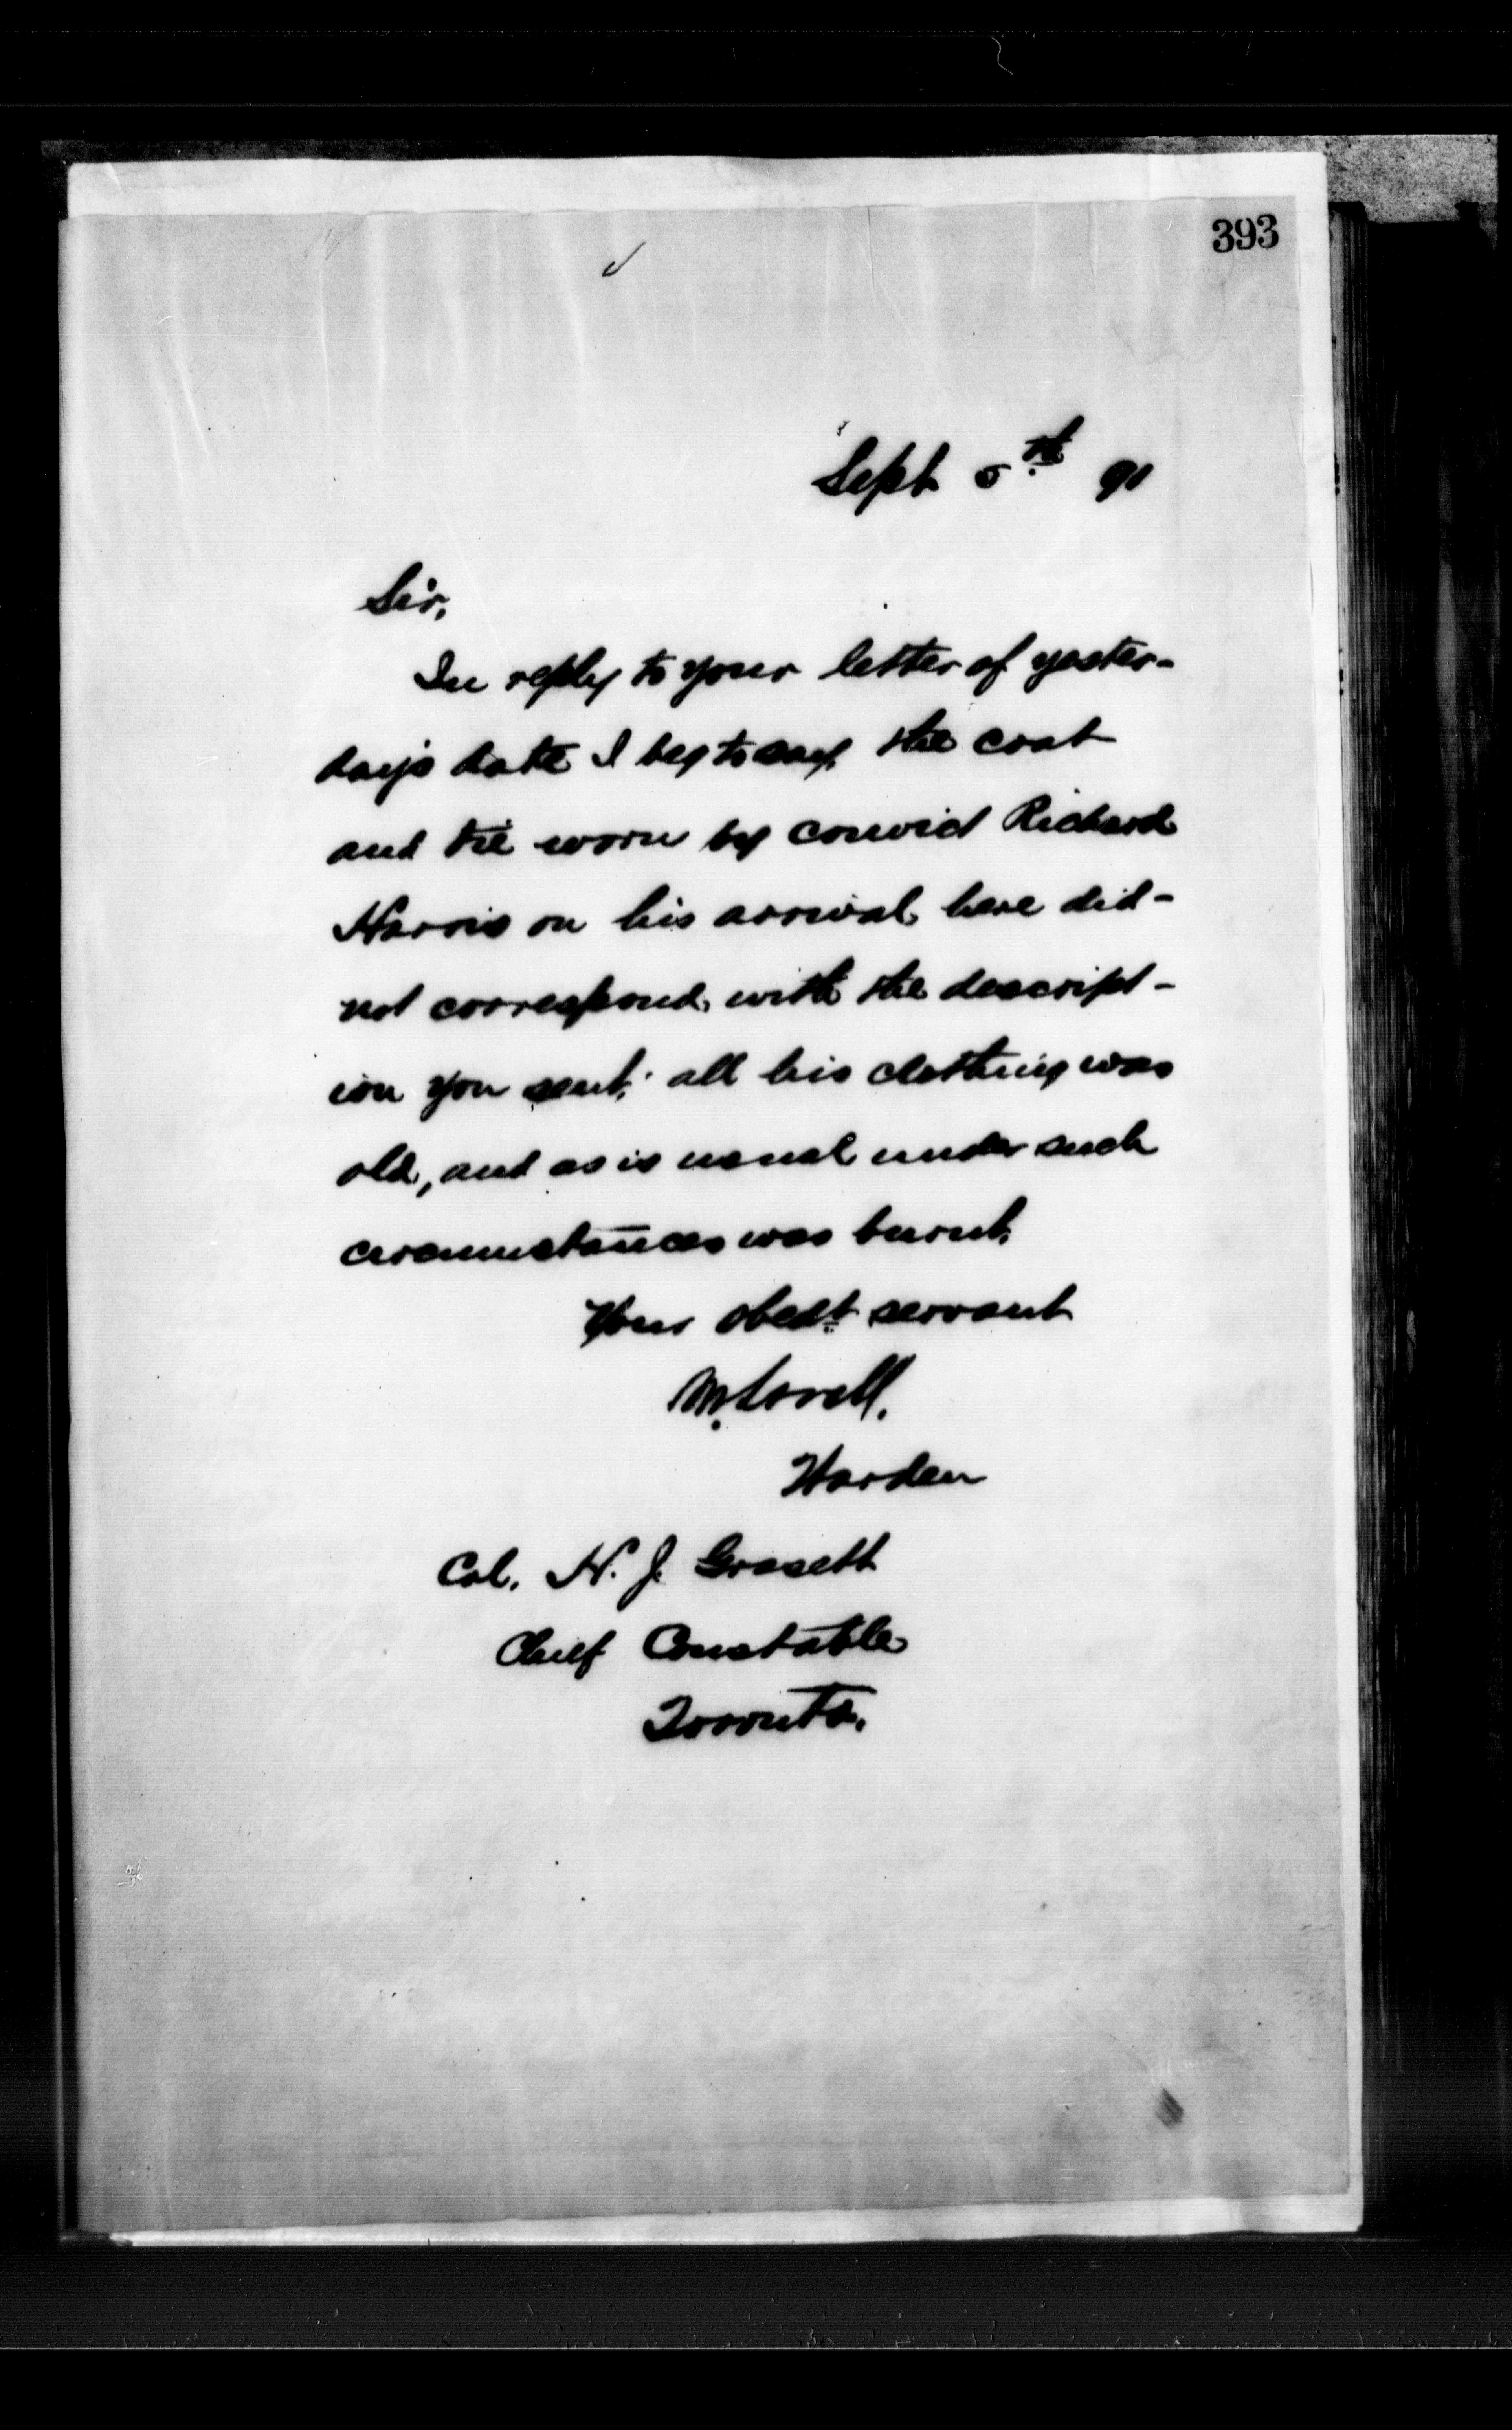 393
Sept 5th 91
Sir,
In reply to your letter of yester-
day's date I beg to say the coat
and tie worn by convict Richard
Harris on his arrival here did-
not correspond with the descript-
ion you sent; all his clothing was
old, and as is usual under such
circumstances was burnt.
Your obedt servant
M. Lavell.
Warden
Col. H. J. Grasett
Chief Constable
Toronto.